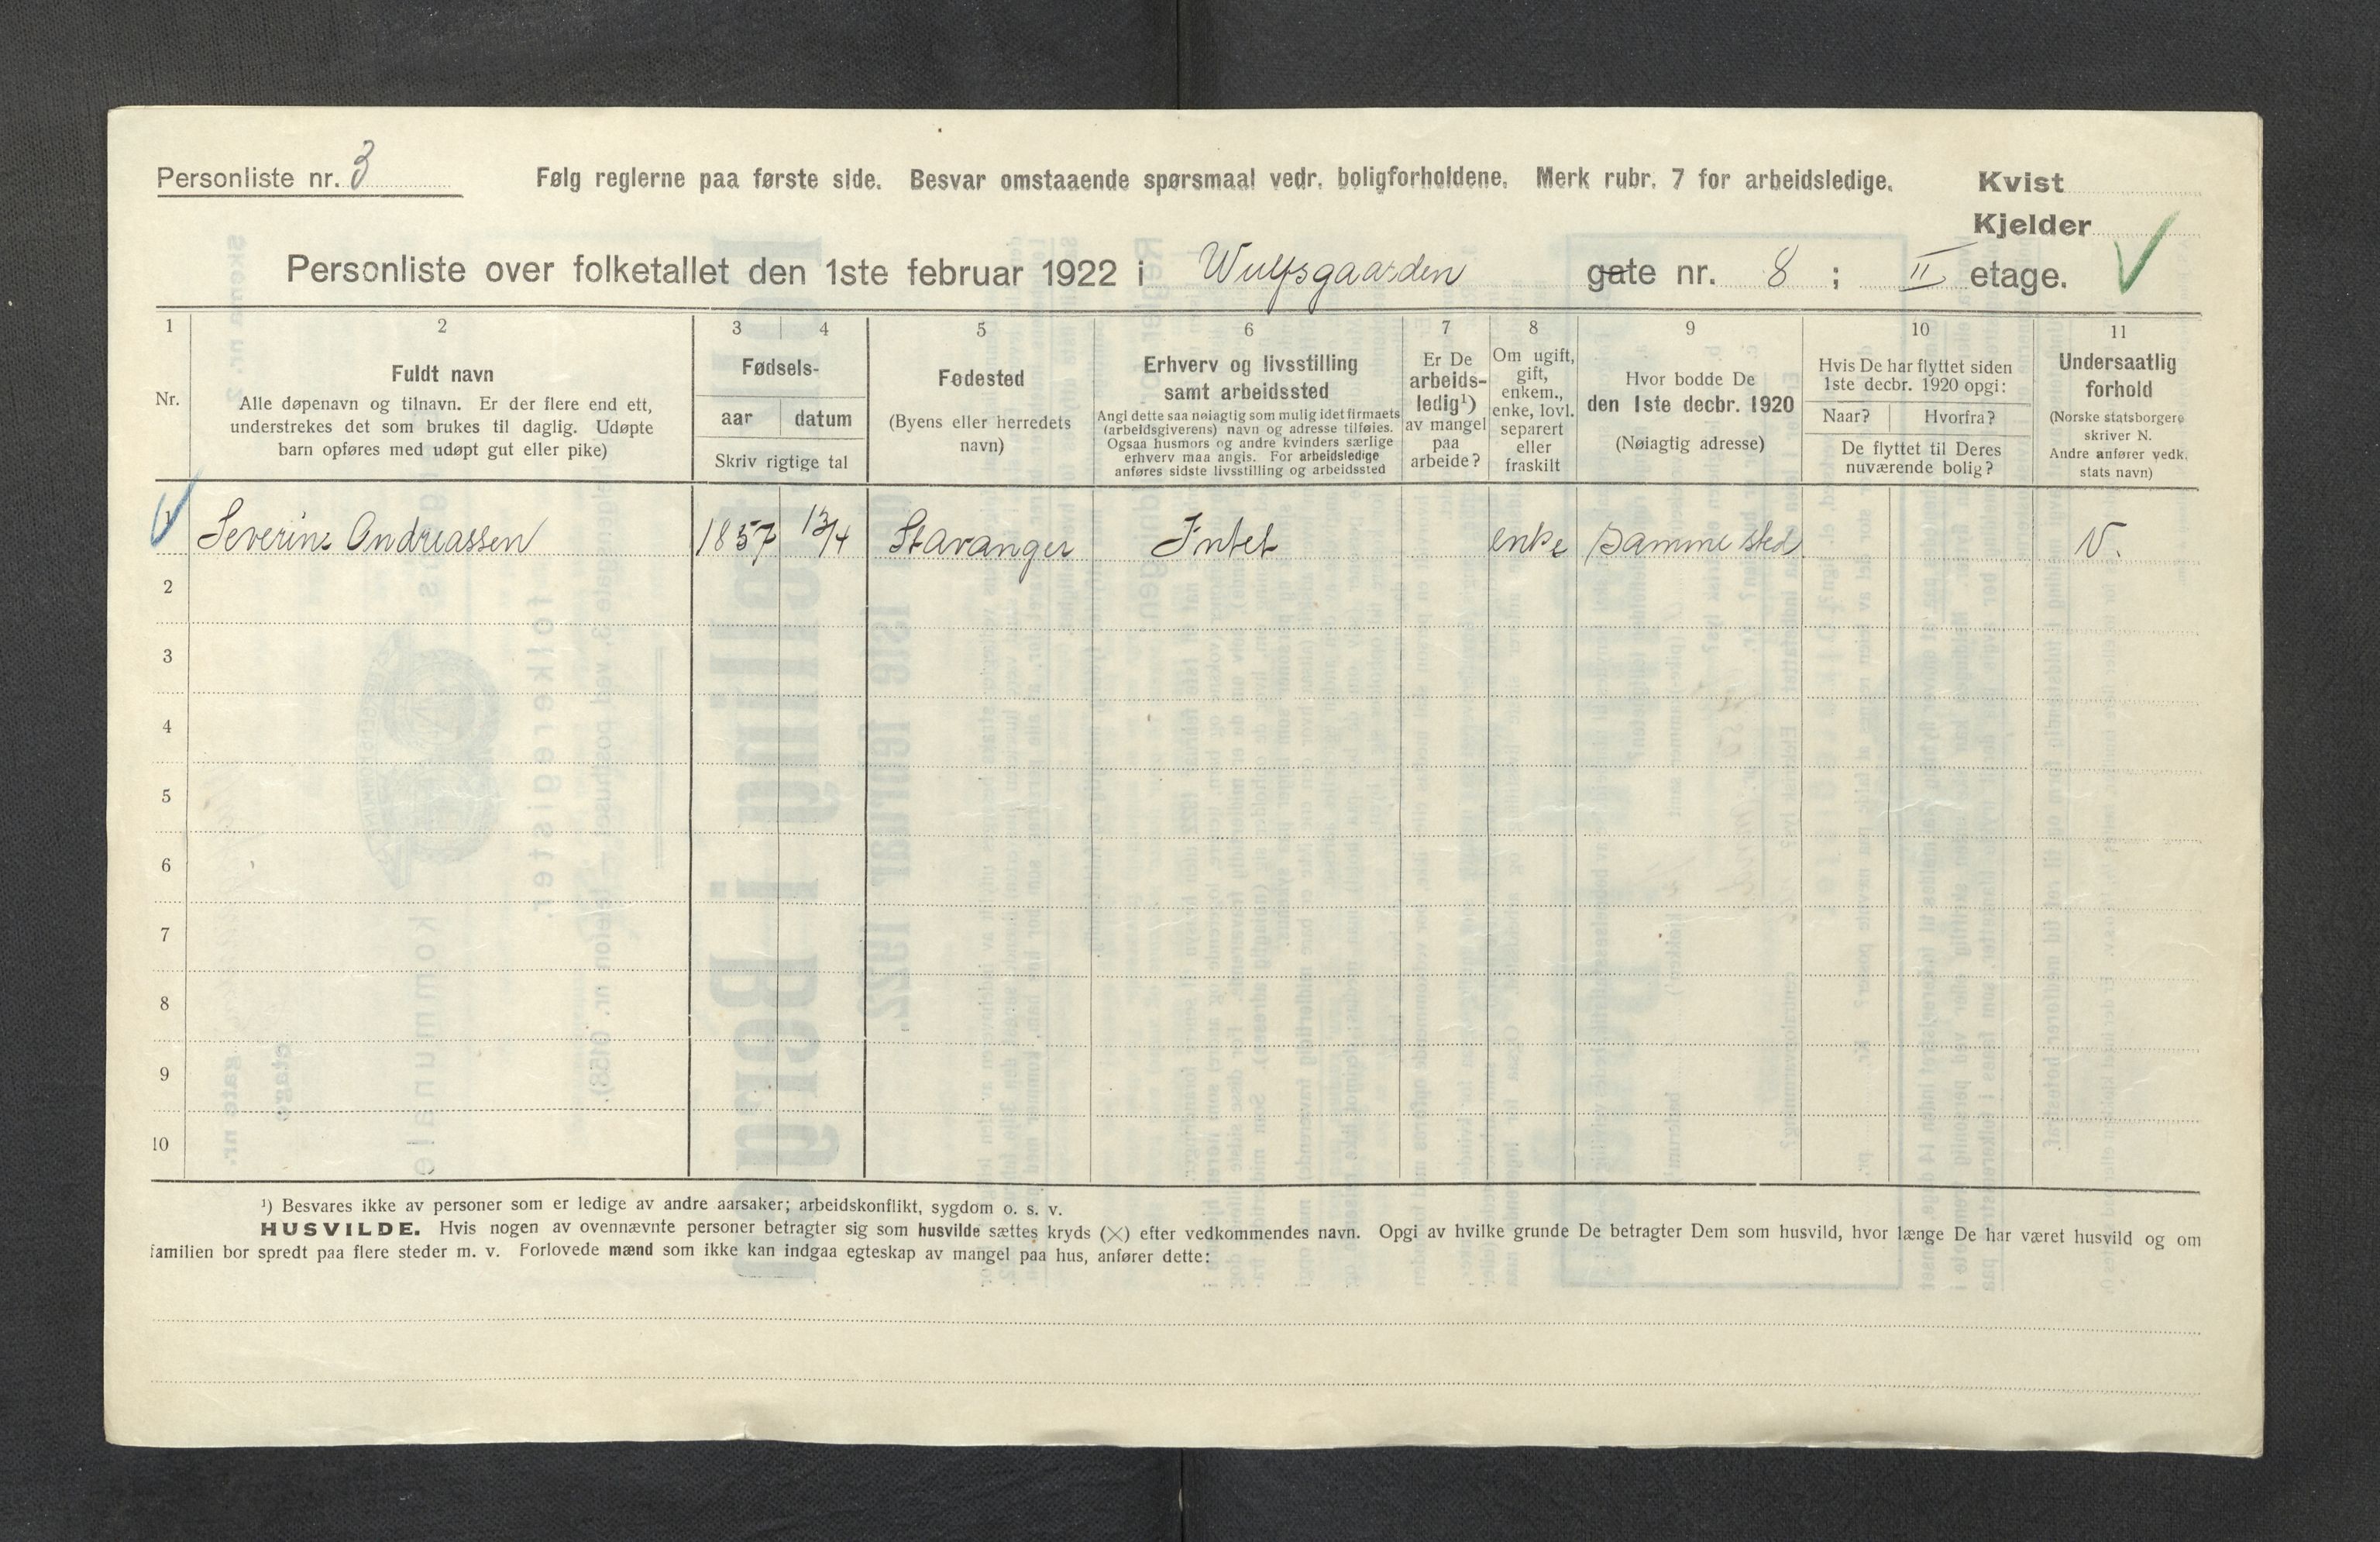 Personliste nr. 3
Følg reglerne paa første side. Besvar omstaaende spørsmaal vedr. boligforholdene. Merk rubr. 7 for arbeidsledige.
Kvist
Kjelder
Personliste over folketallet den 1ste februar 1922 i Wulfsgaarden gate nr. 8 ; II etage.
1 2 3 4 5 6 7 8 9 10 11
Nr.
Fuldt navn
Alle døpenavn og tilnavn. Er der flere end ett,
understrekes det som brukes til daglig. Udøpte
barn opføres med udøpt gut eller pike)
Fødsels-
aar datum
Skriv rigtige tal
Fødested
(Byens eller herredets
navn)
Erhverv og livsstilling
samt arbeidssted
Angi dette saa nøiagtig som mulig idet firmaets
(arbeidsgiverens) navn og adresse tilføies.
Ogsaa husmors og andre kvinders særlige
erhverv maa angis. For arbeidsledige
anføres sidste livsstilling og arbeidssted
Er De
arbeids-
ledig¹)
av mangel
paa
arbeide?
Om ugift,
gift,
enkem.,
enke, lovl.
separert
eller
fraskilt
Hvor bodde De
den 1ste decbr. 1920
(Nøiagtig adresse)
Hvis De har flyttet siden
1ste decbr. 1920 opgi:
Naar? Hvorfra?
De flyttet til Deres
nuværende bolig?
Undersaatlig
forhold
(Norske statsborgere
skriver N.
Andre anfører vedk.
stats navn)
1 Severine Andreassen 1857 13/4 Stavanger Intet enke Samme sted N.
2
3
4
5
6
7
8
9
10
¹) Besvares ikke av personer som er ledige av andre aarsaker; arbeidskonflikt, sygdom o. s. v.
HUSVILDE. Hvis nogen av ovennævnte personer betragter sig som husvilde sættes kryds (×) efter vedkommendes navn. Opgi av hvilke grunde De betragter Dem som husvild, hvor længe De har været husvild og om
familien bor spredt paa flere steder m. v. Forlovede mænd som ikke kan indgaa egteskap av mangel paa hus, anfører dette: